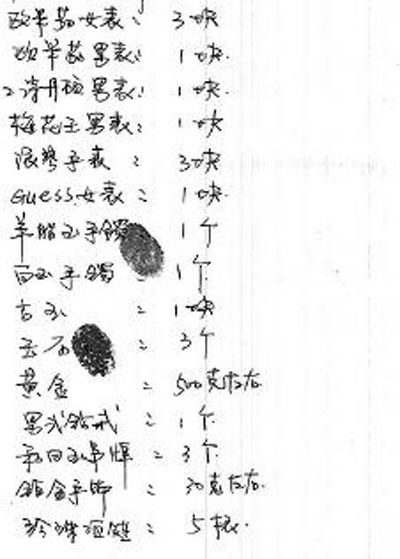 欧米茄女表: 3块
欧米茄男表: 1块.
男表: 1块.
梅花王男表: 1块
浪琴手表: 3块
Guess女表: 1块.
羊脂玉手镯 1个
白玉手镯 1个
古玉 : 1块
玉石 : 3个
黄金 : 500克左右
男式钻戒 : 1个.
: 3个.
铂金手饰 : 30克左右.
珍珠项链: 5根.